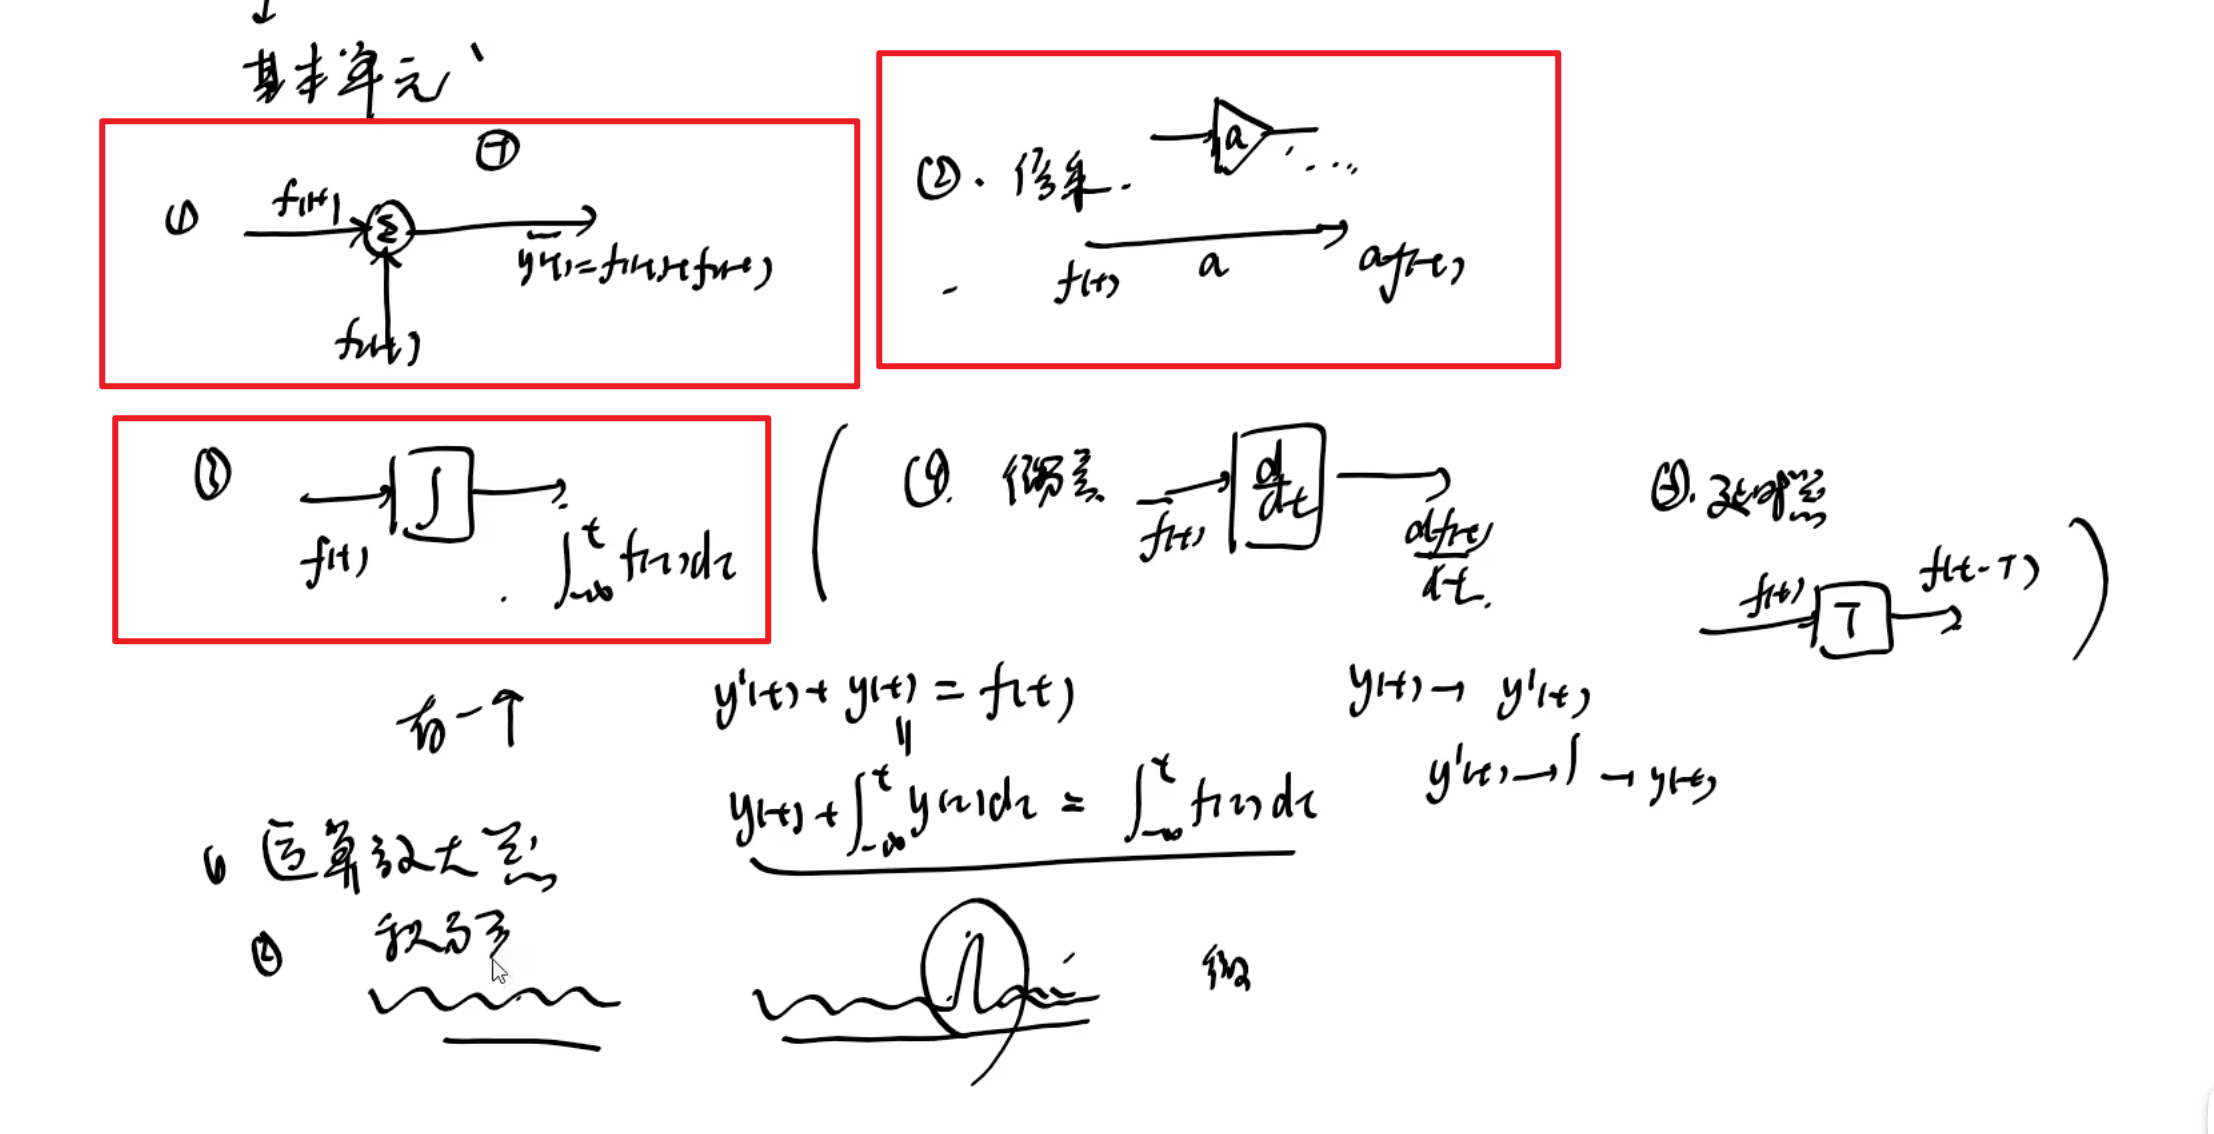 基本单元
① f₁(t) Σ ⊕ y(t)=f₁(t)+f₂(t)
f₂(t)
②. 倍乘. a
f(t) a af(t)
③ f(t) ∫ ∫_{-∞}^{t} f(τ)dτ
④. 微分器 f(t) d/dt df(t)/dt.
⑤. 延时器
f(t) T f(t-T)
有一个
y'(t)+y(t)=f(t)
y(t)→y'(t)
y(t)+∫_{-∞}^{t} y(τ)dτ = ∫_{-∞}^{t} f(τ)dτ
y'(t)→∫→y(t)
运算放大器
②
微